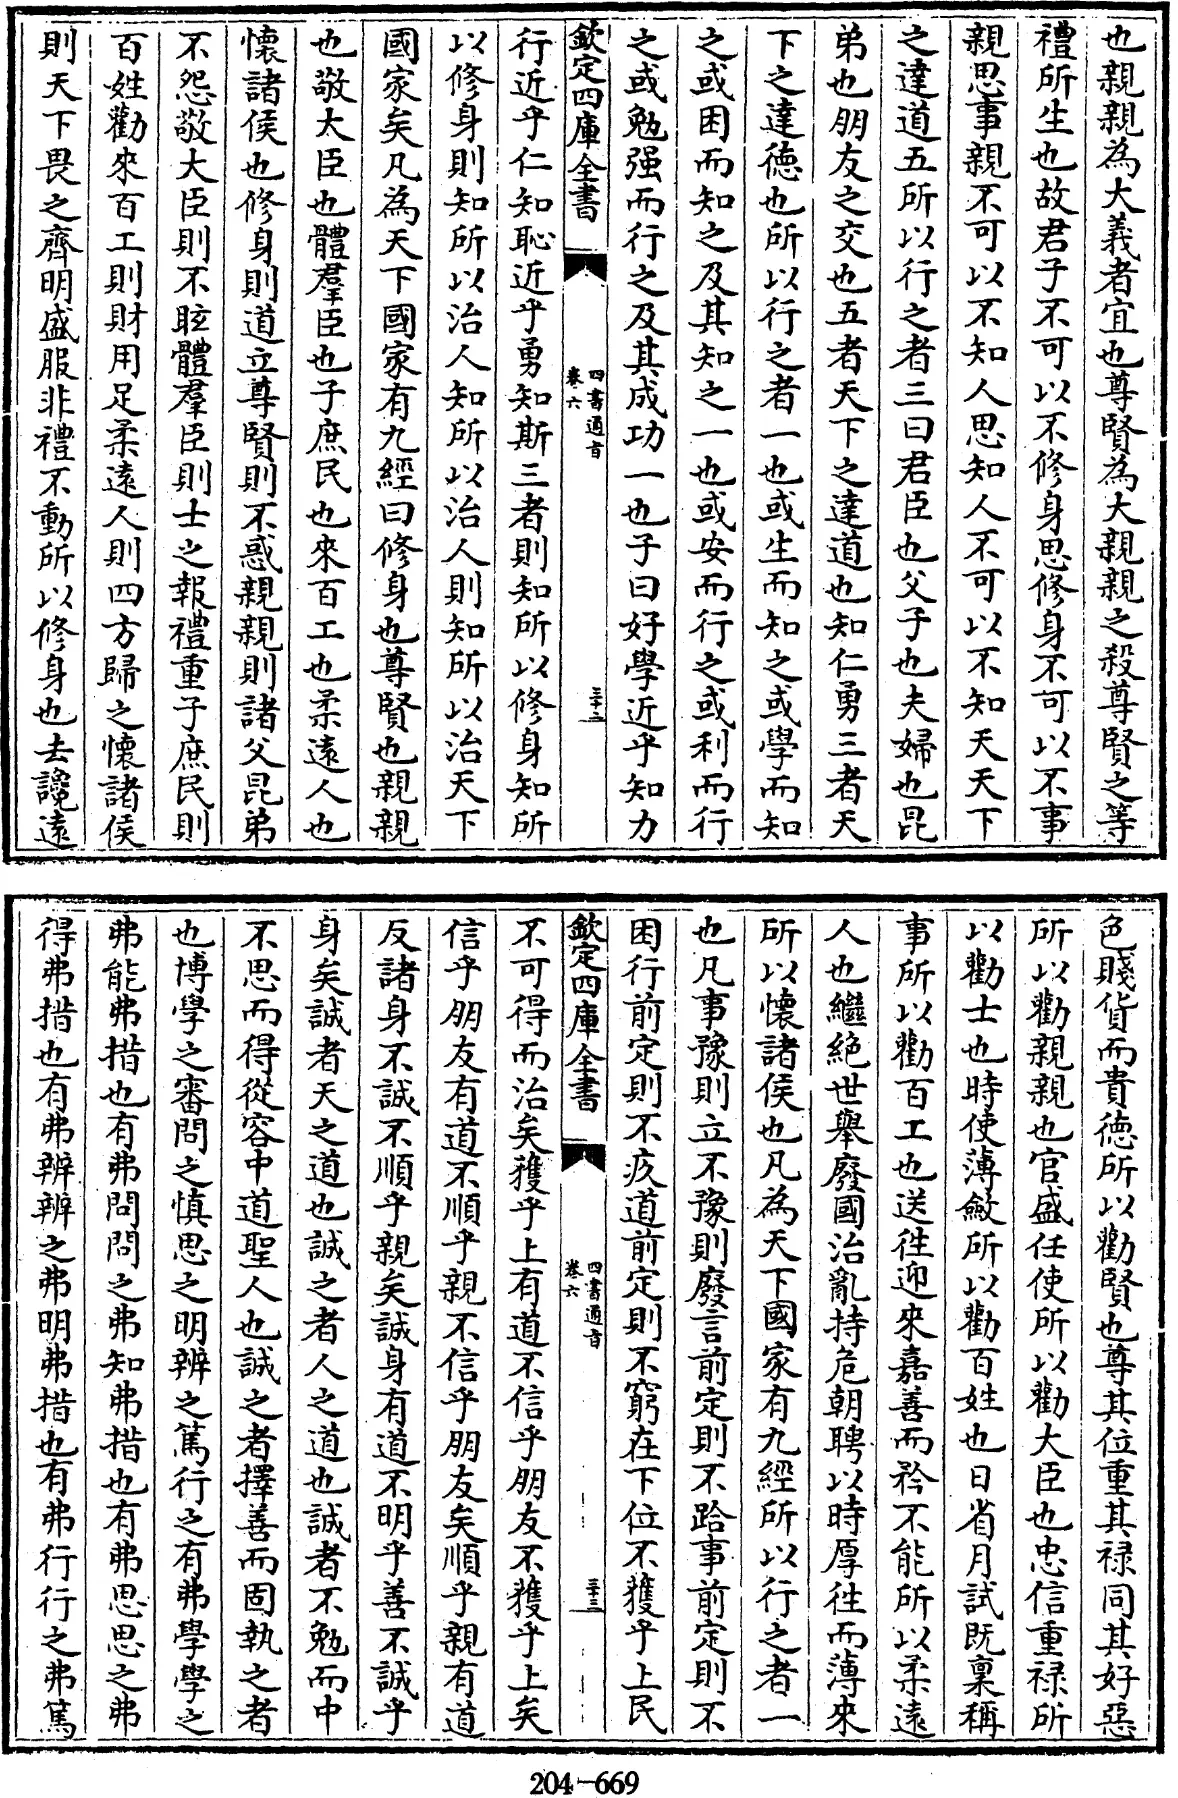 也親親為大義者宜也尊賢為大親親之殺尊賢之等
禮所生也故君子不可以不修身思修身不可以不事
親思事親不可以不知人思知人不可以不知天天下
之達道五所以行之者三曰君臣也父子也夫婦也昆
弟也朋友之交也五者天下之達道也知仁勇三者天
下之達德也所以行之者一也或生而知之或學而知
之或困而知之及其知之一也或安而行之或利而行
之或勉强而行之及其成功一也子曰好學近乎知力
欽定四庫全書
四書通旨
卷六
三十二
行近乎仁知恥近乎勇知斯三者則知所以修身知所
以修身則知所以治人知所以治人則知所以治天下
國家矣凡為天下國家有九經曰修身也尊賢也親親
也敬大臣也體羣臣也子庶民也來百工也柔遠人也
懷諸侯也修身則道立尊賢則不惑親親則諸父昆弟
不怨敬大臣則不眩體羣臣則士之報禮重子庶民則
百姓勸來百工則財用足柔遠人則四方歸之懷諸侯
則天下畏之齊明盛服非禮不動所以修身也去讒遠
色賤貨而貴德所以勸賢也尊其位重其祿同其好惡
所以勸親親也官盛任使所以勸大臣也忠信重祿所
以勸士也時使薄斂所以勸百姓也日省月試既稟稱
事所以勸百工也送往迎來嘉善而矜不能所以柔遠
人也繼絕世舉廢國治亂持危朝聘以時厚往而薄來
所以懷諸侯也凡為天下國家有九經所以行之者一
也凡事豫則立不豫則廢言前定則不跲事前定則不
困行前定則不疚道前定則不窮在下位不獲乎上民
欽定四庫全書
四書通旨
卷六
三十三
不可得而治矣獲乎上有道不信乎朋友不獲乎上矣
信乎朋友有道不順乎親不信乎朋友矣順乎親有道
反諸身不誠不順乎親矣誠身有道不明乎善不誠乎
身矣誠者天之道也誠之者人之道也誠者不勉而中
不思而得從容中道聖人也誠之者擇善而固執之者
也博學之審問之慎思之明辨之篤行之有弗學學之
弗能弗措也有弗問問之弗知弗措也有弗思思之弗
得弗措也有弗辨辨之弗明弗措也有弗行行之弗篤
204-669